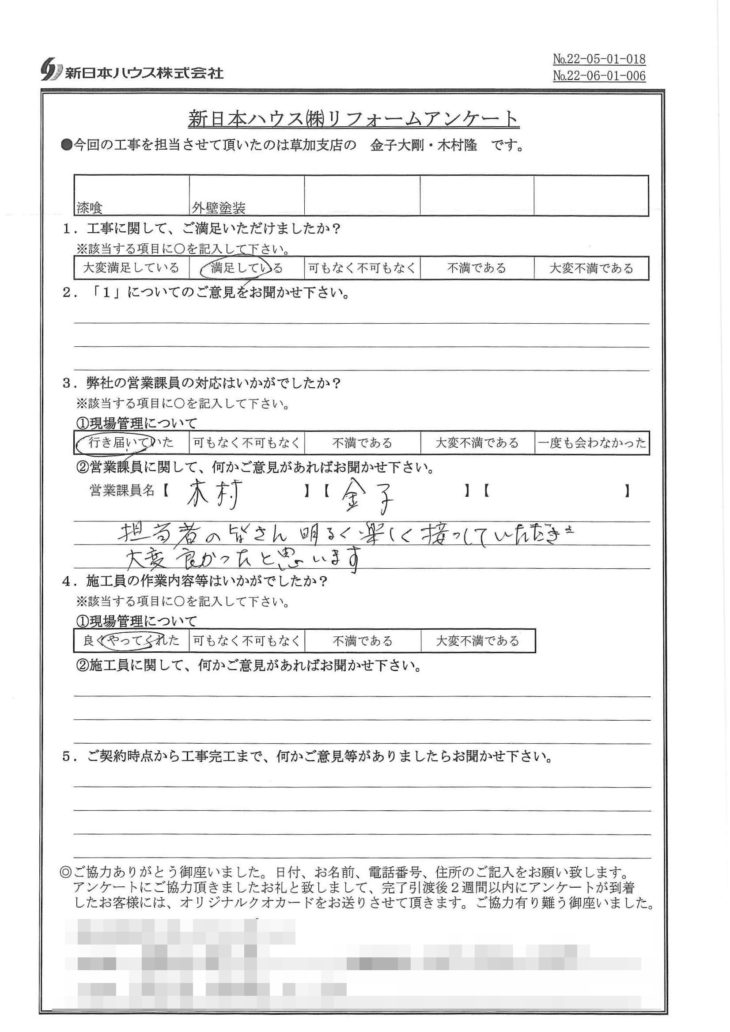 新日本ハウス株式会社
№22-05-01-018
№22-06-01-006
新日本ハウス㈱リフォームアンケート
●今回の工事を担当させて頂いたのは草加支店の 金子大剛・木村隆 です。
漆喰 外壁塗装
1．工事に関して、ご満足いただけましたか？
※該当する項目に○を記入して下さい。
大変満足している 満足している 可もなく不可もなく 不満である 大変不満である
2．「1」についてのご意見をお聞かせ下さい。
3．弊社の営業課員の対応はいかがでしたか？
※該当する項目に○を記入して下さい。
①現場管理について
行き届いていた 可もなく不可もなく 不満である 大変不満である 一度も会わなかった
②営業課員に関して、何かご意見があればお聞かせ下さい。
営業課員名【 木村 】【 金子 】【 】
担当者の皆さん明るく楽しく接していただき
大変良かったと思います
4．施工員の作業内容等はいかがでしたか？
※該当する項目に○を記入して下さい。
①現場管理について
良くやってくれた 可もなく不可もなく 不満である 大変不満である
②施工員に関して、何かご意見があればお聞かせ下さい。
5．ご契約時点から工事完工まで、何かご意見等がありましたらお聞かせ下さい。
◎ご協力ありがとう御座いました。日付、お名前、電話番号、住所のご記入をお願い致します。
アンケートにご協力頂きましたお礼と致しまして、完了引渡後２週間以内にアンケートが到着
したお客様には、オリジナルクオカードをお送りさせて頂きます。ご協力有り難う御座いました。